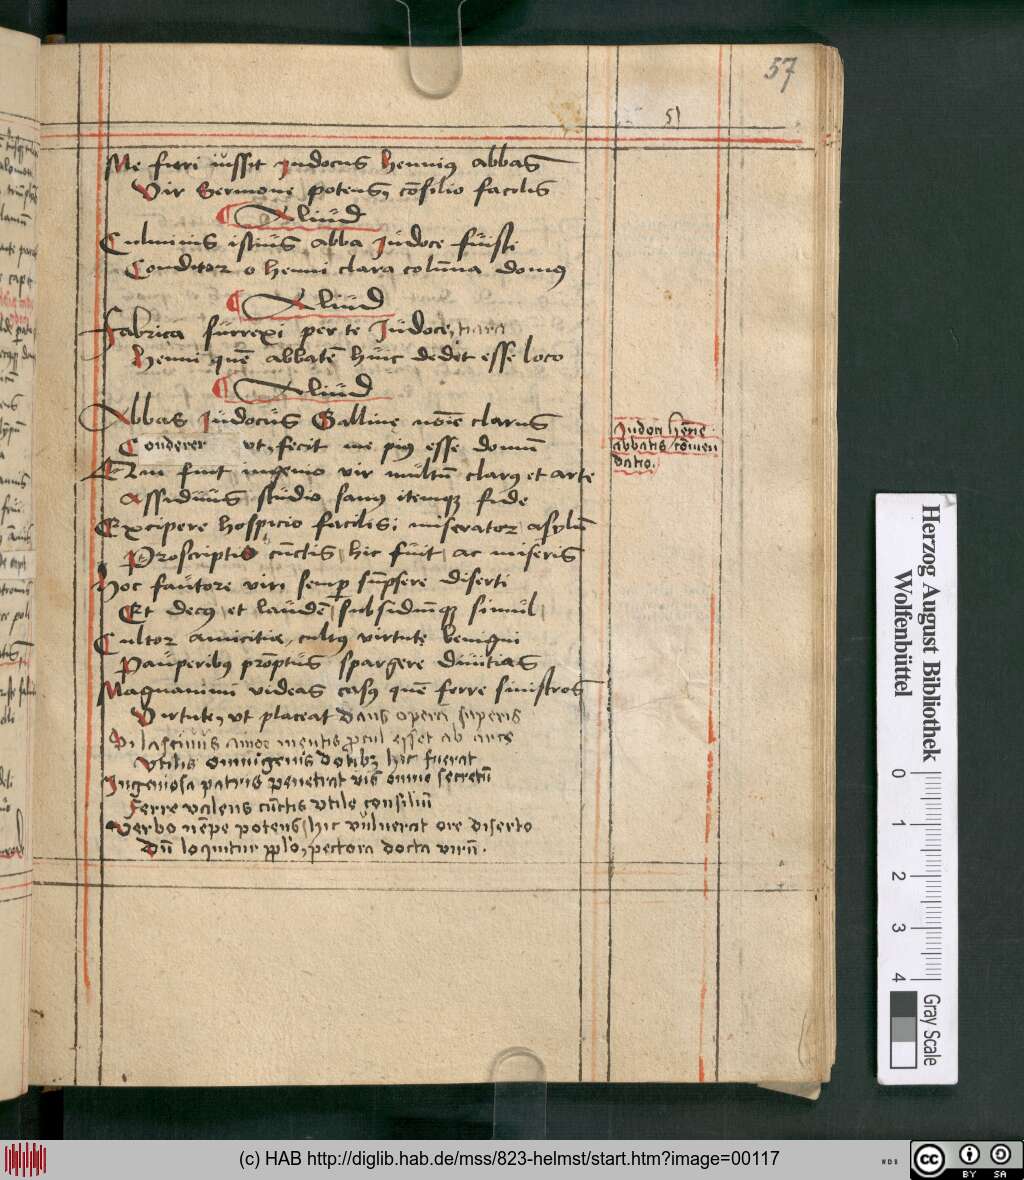 57
51
Me fieri iussit Iudocus hennius abbas
Vir Sermone potens, cōsilio facilis
Aliud
Culminis istius abba Iudoce fuisti
Conditor o henni clara colūna domus
Aliud
Fabrica surrexi per te Iudoce,
henni quē abbatē huic dedit esse loco
Aliud
Abbas Iudocus Galline noīe clarus
Conderer ut, fecit me pius esse domū
fuit ingenio vir multū clarus et arte
Assiduus studio sanus itemqz fide
Excipere hospicio facilis, miserator asylū
Proscriptis cūctis hic fuit ac miseris
Hoc fautore viri semp sūpsere diserti
Et decus et laudē subsidiūqz simul
Cultor amicitiæ, cultus virtute benigni
Pauperibus prōptus spargere diuitias
Magnanimi videas casus quē ferre sinistros
Virtute, ut placeat Dans opera superis
lasciuus amor mentis procul esset ab arce
Vtilis omnigenis dotibz hic fuerat
Ingeniosa patris penetrat vis omne secretū
Ferre valens cūctis vtile consiliū
Verbo nēpe potens hic vulnerat ore diserto
Dū loquitur pplo, pectora docta virū.
Iudoci hēnie
abbatis cōmen
datio.
Herzog August Bibliothek
Wolfenbüttel
0 1 2 3 4
Gray Scale
(c) HAB http://diglib.hab.de/mss/823-helmst/start.htm?image=00117
WDB
cc
BY SA